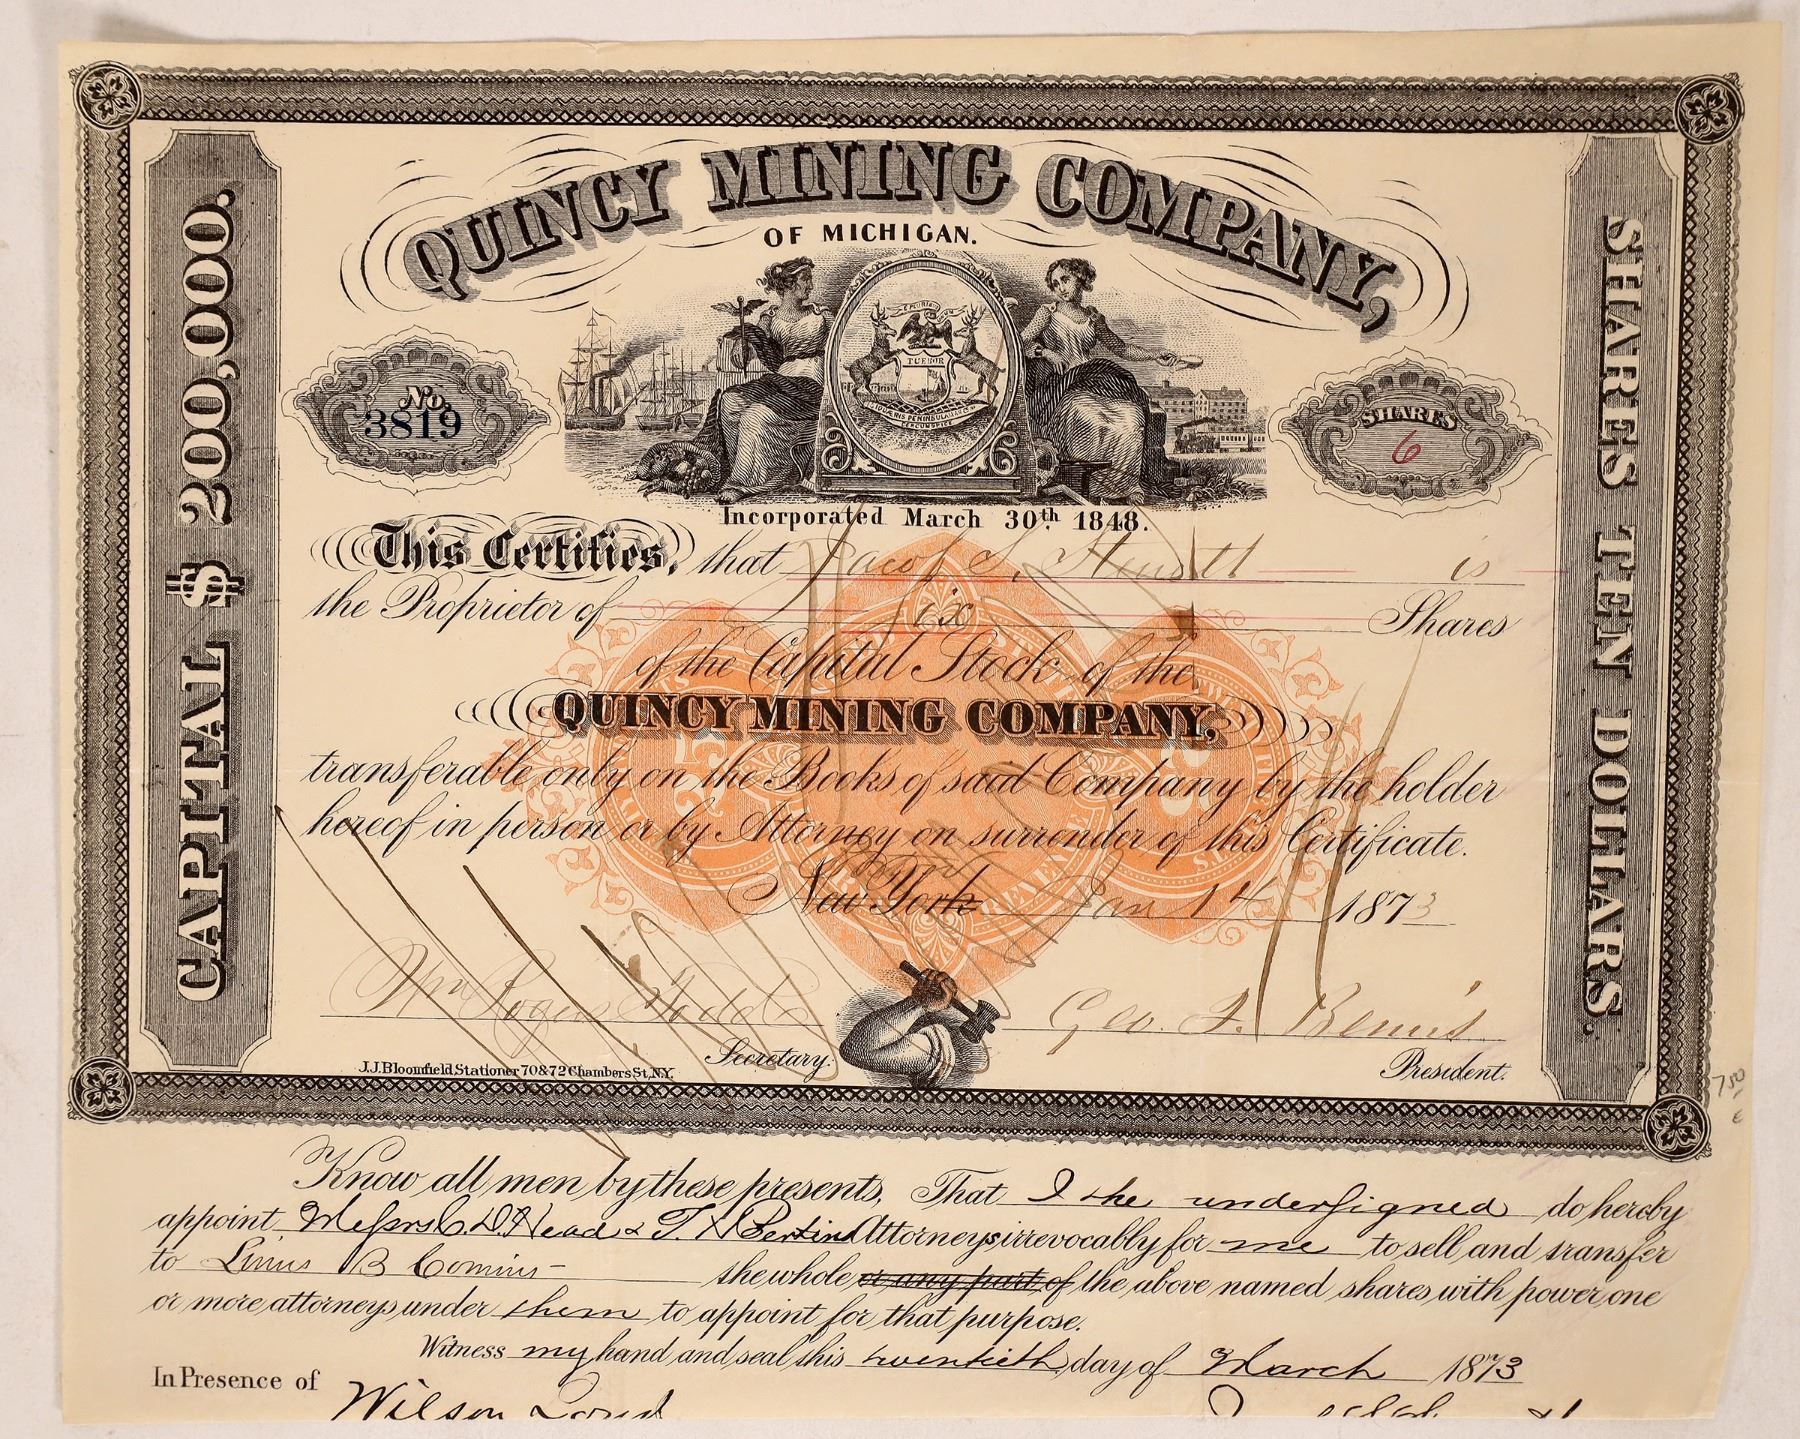 QUINCY MINING COMPANY,
OF MICHIGAN.
CAPITAL $ 200,000.
SHARES TEN DOLLARS.
No.
3819
TUEBOR
SHARES
6
Incorporated March 30th 1848.
This Certifies, that Jacob is
the Proprietor of Six Shares
of the Capital Stock of the
QUINCY MINING COMPANY,
transferable only on the Books of said Company by the holder
hereof in person or by Attorney on surrender of this Certificate.
New York Jan 14 1873
Wm Rogers Todd Geo. Bemis
Secretary. President.
J.J. Bloomfield, Stationer 70 & 72 Chambers St, N.Y.
7 50
Know all men by these presents, That I the undersigned do hereby
appoint Messrs C. D. Head & T. H. Perkins Attorneys irrevocably for me to sell and transfer
to Linus B Comins the whole or any part of the above named shares, with power, one
or more attorneys under them to appoint for that purpose.
Witness my hand and seal this twentieth day of March 1873
In Presence of
Wilson